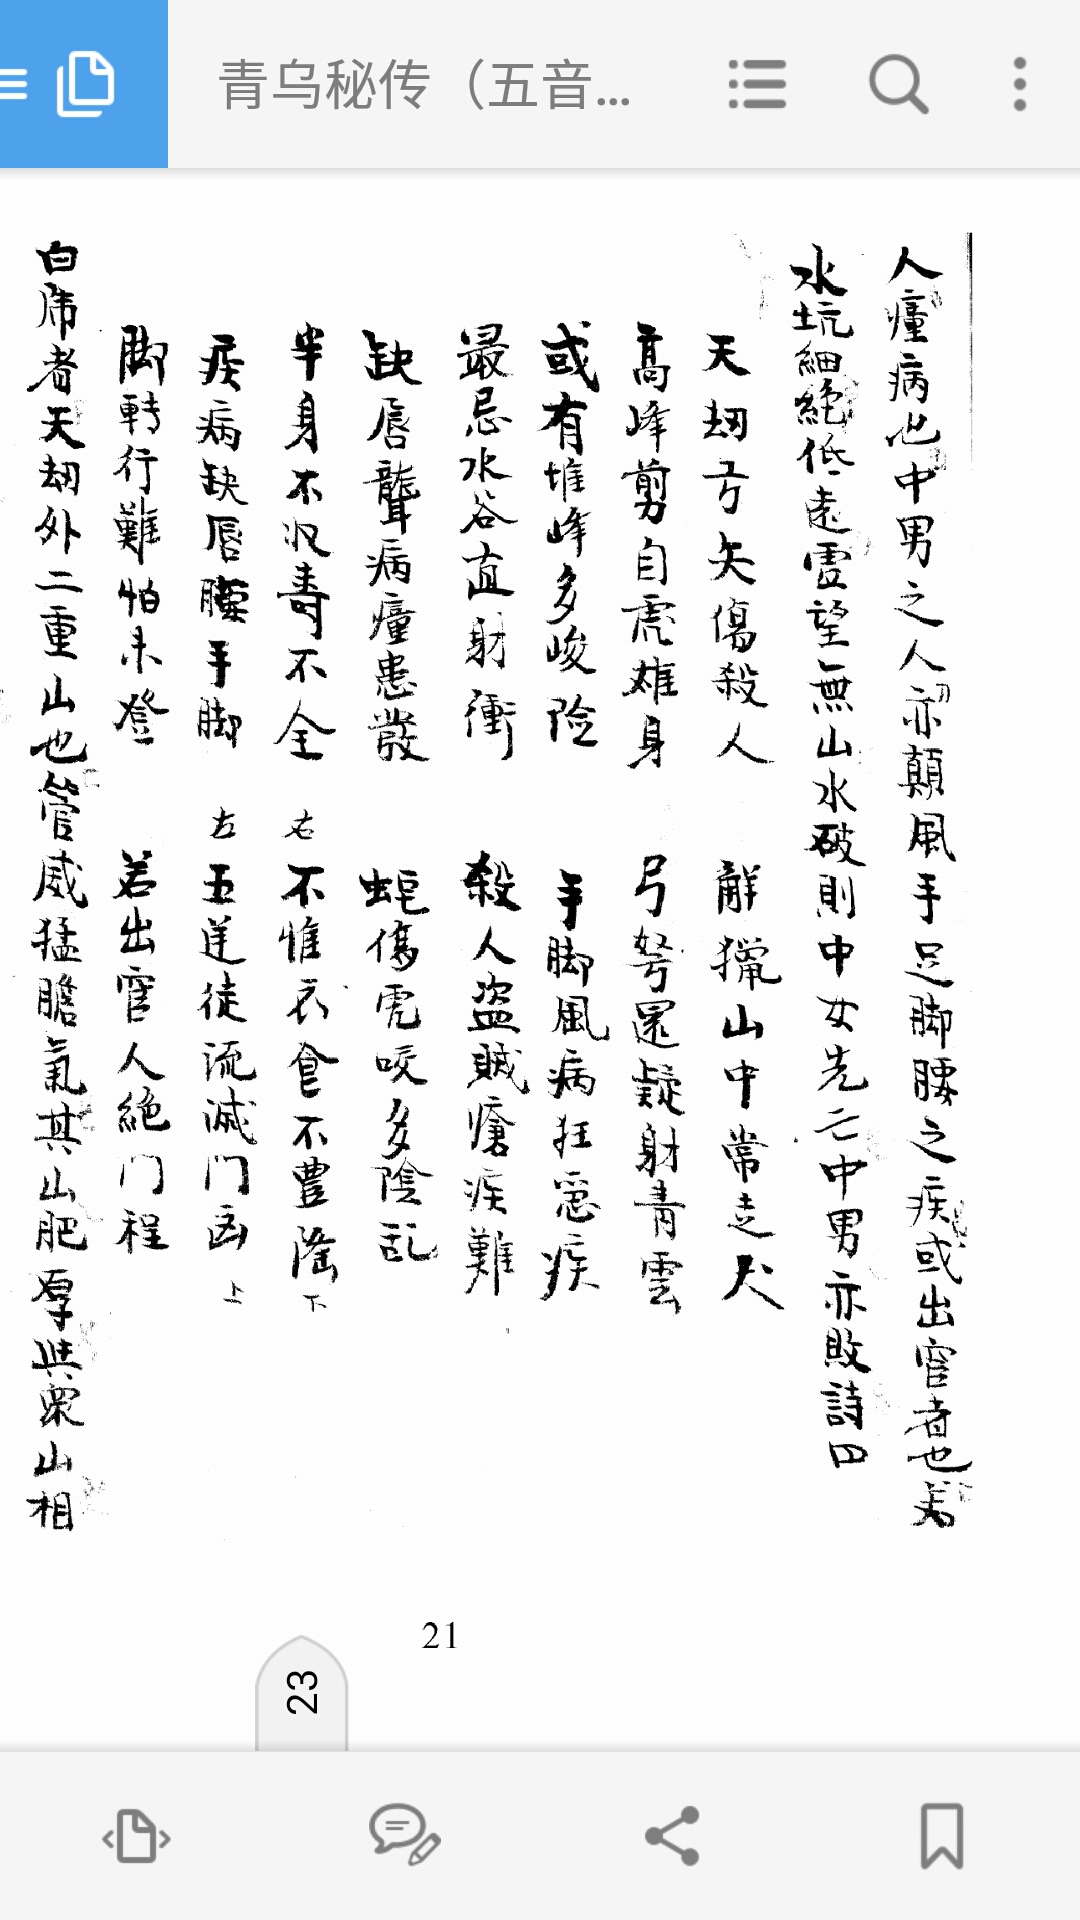 青乌秘传（五音...
人瘴病也中男之人亦顛風手足脚腰之疾或出官者也若
水坑細絶低遠雲望無山水破則中女先亡中男亦敗詩四
天刼弓矢傷殺人 辭獵山中常走犬
高峰剪自虎雄身 弓弩還疑射青雲
或有堆峰多峻险 手脚風病狂惡疾
最忌水谷直射衝 殺人盗賊瘡疾難
缺唇聾病瘴患發 蛇傷虎咬多陰乱
半身不収壽不全 右不惟衣食不豊隆下
疾病缺唇腰手脚 左五逆徒流滅门凶上
脚轉行難怕未登 若出官人絶门程
白虎者天刼外二重山也管威猛膽氣其山肥厚與衆山相
21
23